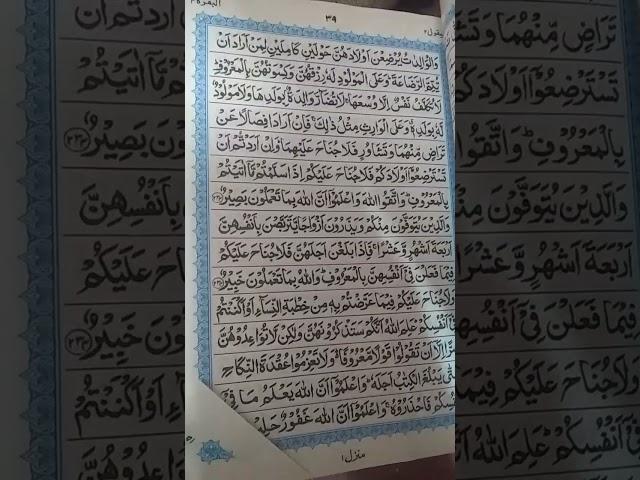 البقرة ٢
٣٩
سيقول ٢
وَالْوَالِدَاتُ يُرْضِعْنَ اَوْلَادَهُنَّ حَوْلَيْنِ كَامِلَيْنِ لِمَنْ اَرَادَ اَنْ
يُّتِمَّ الرَّضَاعَةَ ؕ وَعَلَى الْمَوْلُوْدِ لَهٗ رِزْقُهُنَّ وَكِسْوَتُهُنَّ بِالْمَعْرُوْفِ ؕ
لَا تُكَلَّفُ نَفْسٌ اِلَّا وُسْعَهَا ۚ لَا تُضَآرَّ وَالِدَةٌۢ بِوَلَدِهَا وَلَا مَوْلُوْدٌ
لَّهٗ بِوَلَدِهٖ ۗ وَعَلَى الْوَارِثِ مِثْلُ ذٰلِكَ ۚ فَاِنْ اَرَادَا فِصَالًا عَنْ
تَرَاضٍ مِّنْهُمَا وَتَشَاوُرٍ فَلَا جُنَاحَ عَلَيْهِمَا ؕ وَاِنْ اَرَدْتُّمْ اَنْ
تَسْتَرْضِعُوْٓا اَوْلَادَكُمْ فَلَا جُنَاحَ عَلَيْكُمْ اِذَا سَلَّمْتُمْ مَّآ اٰتَيْتُمْ
بِالْمَعْرُوْفِ ؕ وَاتَّقُوا اللّٰهَ وَاعْلَمُوْٓا اَنَّ اللّٰهَ بِمَا تَعْمَلُوْنَ بَصِيْرٌ ﴿٢٣٣﴾
وَالَّذِيْنَ يُتَوَفَّوْنَ مِنْكُمْ وَيَذَرُوْنَ اَزْوَاجًا يَّتَرَبَّصْنَ بِاَنْفُسِهِنَّ
اَرْبَعَةَ اَشْهُرٍ وَّعَشْرًا ۚ فَاِذَا بَلَغْنَ اَجَلَهُنَّ فَلَا جُنَاحَ عَلَيْكُمْ
فِيْمَا فَعَلْنَ فِيْٓ اَنْفُسِهِنَّ بِالْمَعْرُوْفِ ؕ وَاللّٰهُ بِمَا تَعْمَلُوْنَ خَبِيْرٌ ﴿٢٣٤﴾
وَلَا جُنَاحَ عَلَيْكُمْ فِيْمَا عَرَّضْتُمْ بِهٖ مِنْ خِطْبَةِ النِّسَآءِ اَوْ اَكْنَنْتُمْ
فِيْٓ اَنْفُسِكُمْ ؕ عَلِمَ اللّٰهُ اَنَّكُمْ سَتَذْكُرُوْنَهُنَّ وَلٰكِنْ لَّا تُوَاعِدُوْهُنَّ
سِرًّا اِلَّآ اَنْ تَقُوْلُوْا قَوْلًا مَّعْرُوْفًا ؕ وَلَا تَعْزِمُوْا عُقْدَةَ النِّكَاحِ
حَتّٰى يَبْلُغَ الْكِتٰبُ اَجَلَهٗ ؕ وَاعْلَمُوْٓا اَنَّ اللّٰهَ يَعْلَمُ مَا فِيْٓ
اَنْفُسِكُمْ فَاحْذَرُوْهُ ۚ وَاعْلَمُوْٓا اَنَّ اللّٰهَ غَفُوْرٌ حَلِيْمٌ
منزل ١